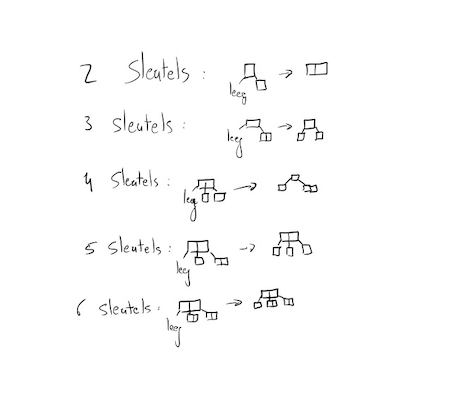 2 Sleutels :
leeg
3 Sleutels :
leeg
4 Sleutels :
leeg
5 Sleutels :
leeg
6 Sleutels :
leeg